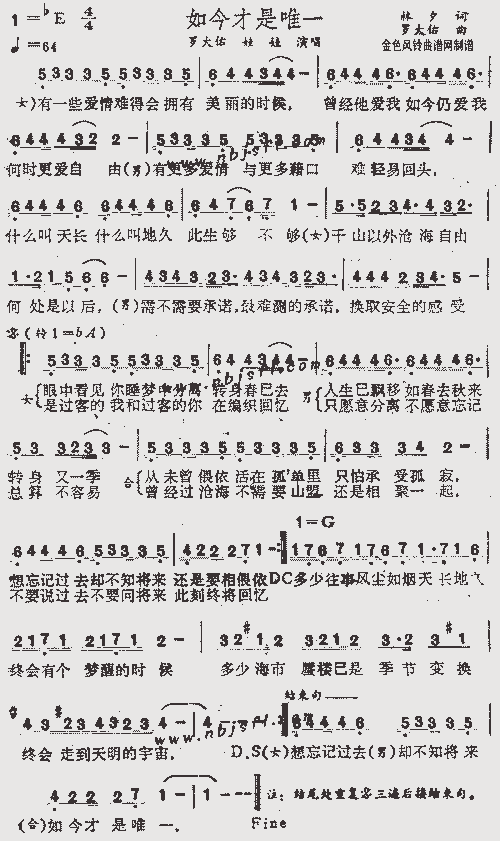 1=♭E 4/4 如今才是唯一 林夕 词
罗大佑 曲
♩=64 罗大佑 娃娃 演唱 金色风铃曲谱网制谱
5 3 3 3 5 5 3 3 3 5 | 6 4 4 3 4 4 − | 6 4 4 4 6· 6 4 4 4 6·
(女)有一些爱情难得会拥有 美丽的时候, 曾经他爱我 如今仍爱我
6 4 4 4 4 3 2 2 − | 5 3 3 3 5 5 3 3 3 5 | 6 4 4 3 4 4 −
何时更爱自 由(男)有更多爱情 与更多藉口 难轻易回头,
www.nbjsfl.com
6 4 4 4 6 6 4 4 4 6 | 6 4 7 6 7 1 − | 5·5 2 3 4·4 3 2·
什么叫天长 什么叫地久 此生够 不 够(女)千山以外沧海自由
1·2 1 5 6 6 − | 4 3 4 3 2 3· 4 3 4 3 2 3· | 4 4 4 2 3 4·5 −
何处是以后, (男)需不需要承诺,最难测的承诺, 换取安全的感受
(转1=♭A)
5 3 3 3 5 5 3 3 3 5 | 6 4 4 3 4 4 − | 6 4 4 4 6· 6 4 4 4 6·
女 眼中看见 你睡梦中分离 转身春已去 男 人生已飘移 如春去秋来
是过客的 我和过客的你 在编织回忆 只愿意分离 不愿意忘记
www.nbjsfl.com
5 3 3 2 3 3 − | 5 3 3 3 5 5 3 3 3 5 | 6 3 3 3 4 2 −
转身 又一季 合 从未曾偎依 活在孤单里 只怕承受孤寂,
总算 不容易 曾经过沧海 不需要山盟 还是相聚一起,
1=G
6 4 4 4 6 5 3 3 3 5 | 4 2 2 2 7 1 − 1 7 6 7 1 7 6 7 1·7 1 6
想忘记过去却不知将来 还是要相偎依DC多少往事风尘如烟天长地久
不要说过去不要问将来 此刻终将回忆
2 1 7 1 2 1 7 1 2 − | 3 2 #1 2 3 2 1 2 3·2 3 #1
终会有个 梦醒的时候 多少海市 蜃楼已是 季节变换
结束句
#4 3 #2 3 4 3 2 3 4 − | 4 − − − 6 4 4 4 6 5 3 3 3 5
终会 走到天明的宇宙, D.S(女)想忘记过去(男)却不知将来
www.nbjsfl.
4 2 2 2 7 1 − | 1 − − − 注: 结尾处重复三遍后接结束句。
(合)如今才是唯一. Fine